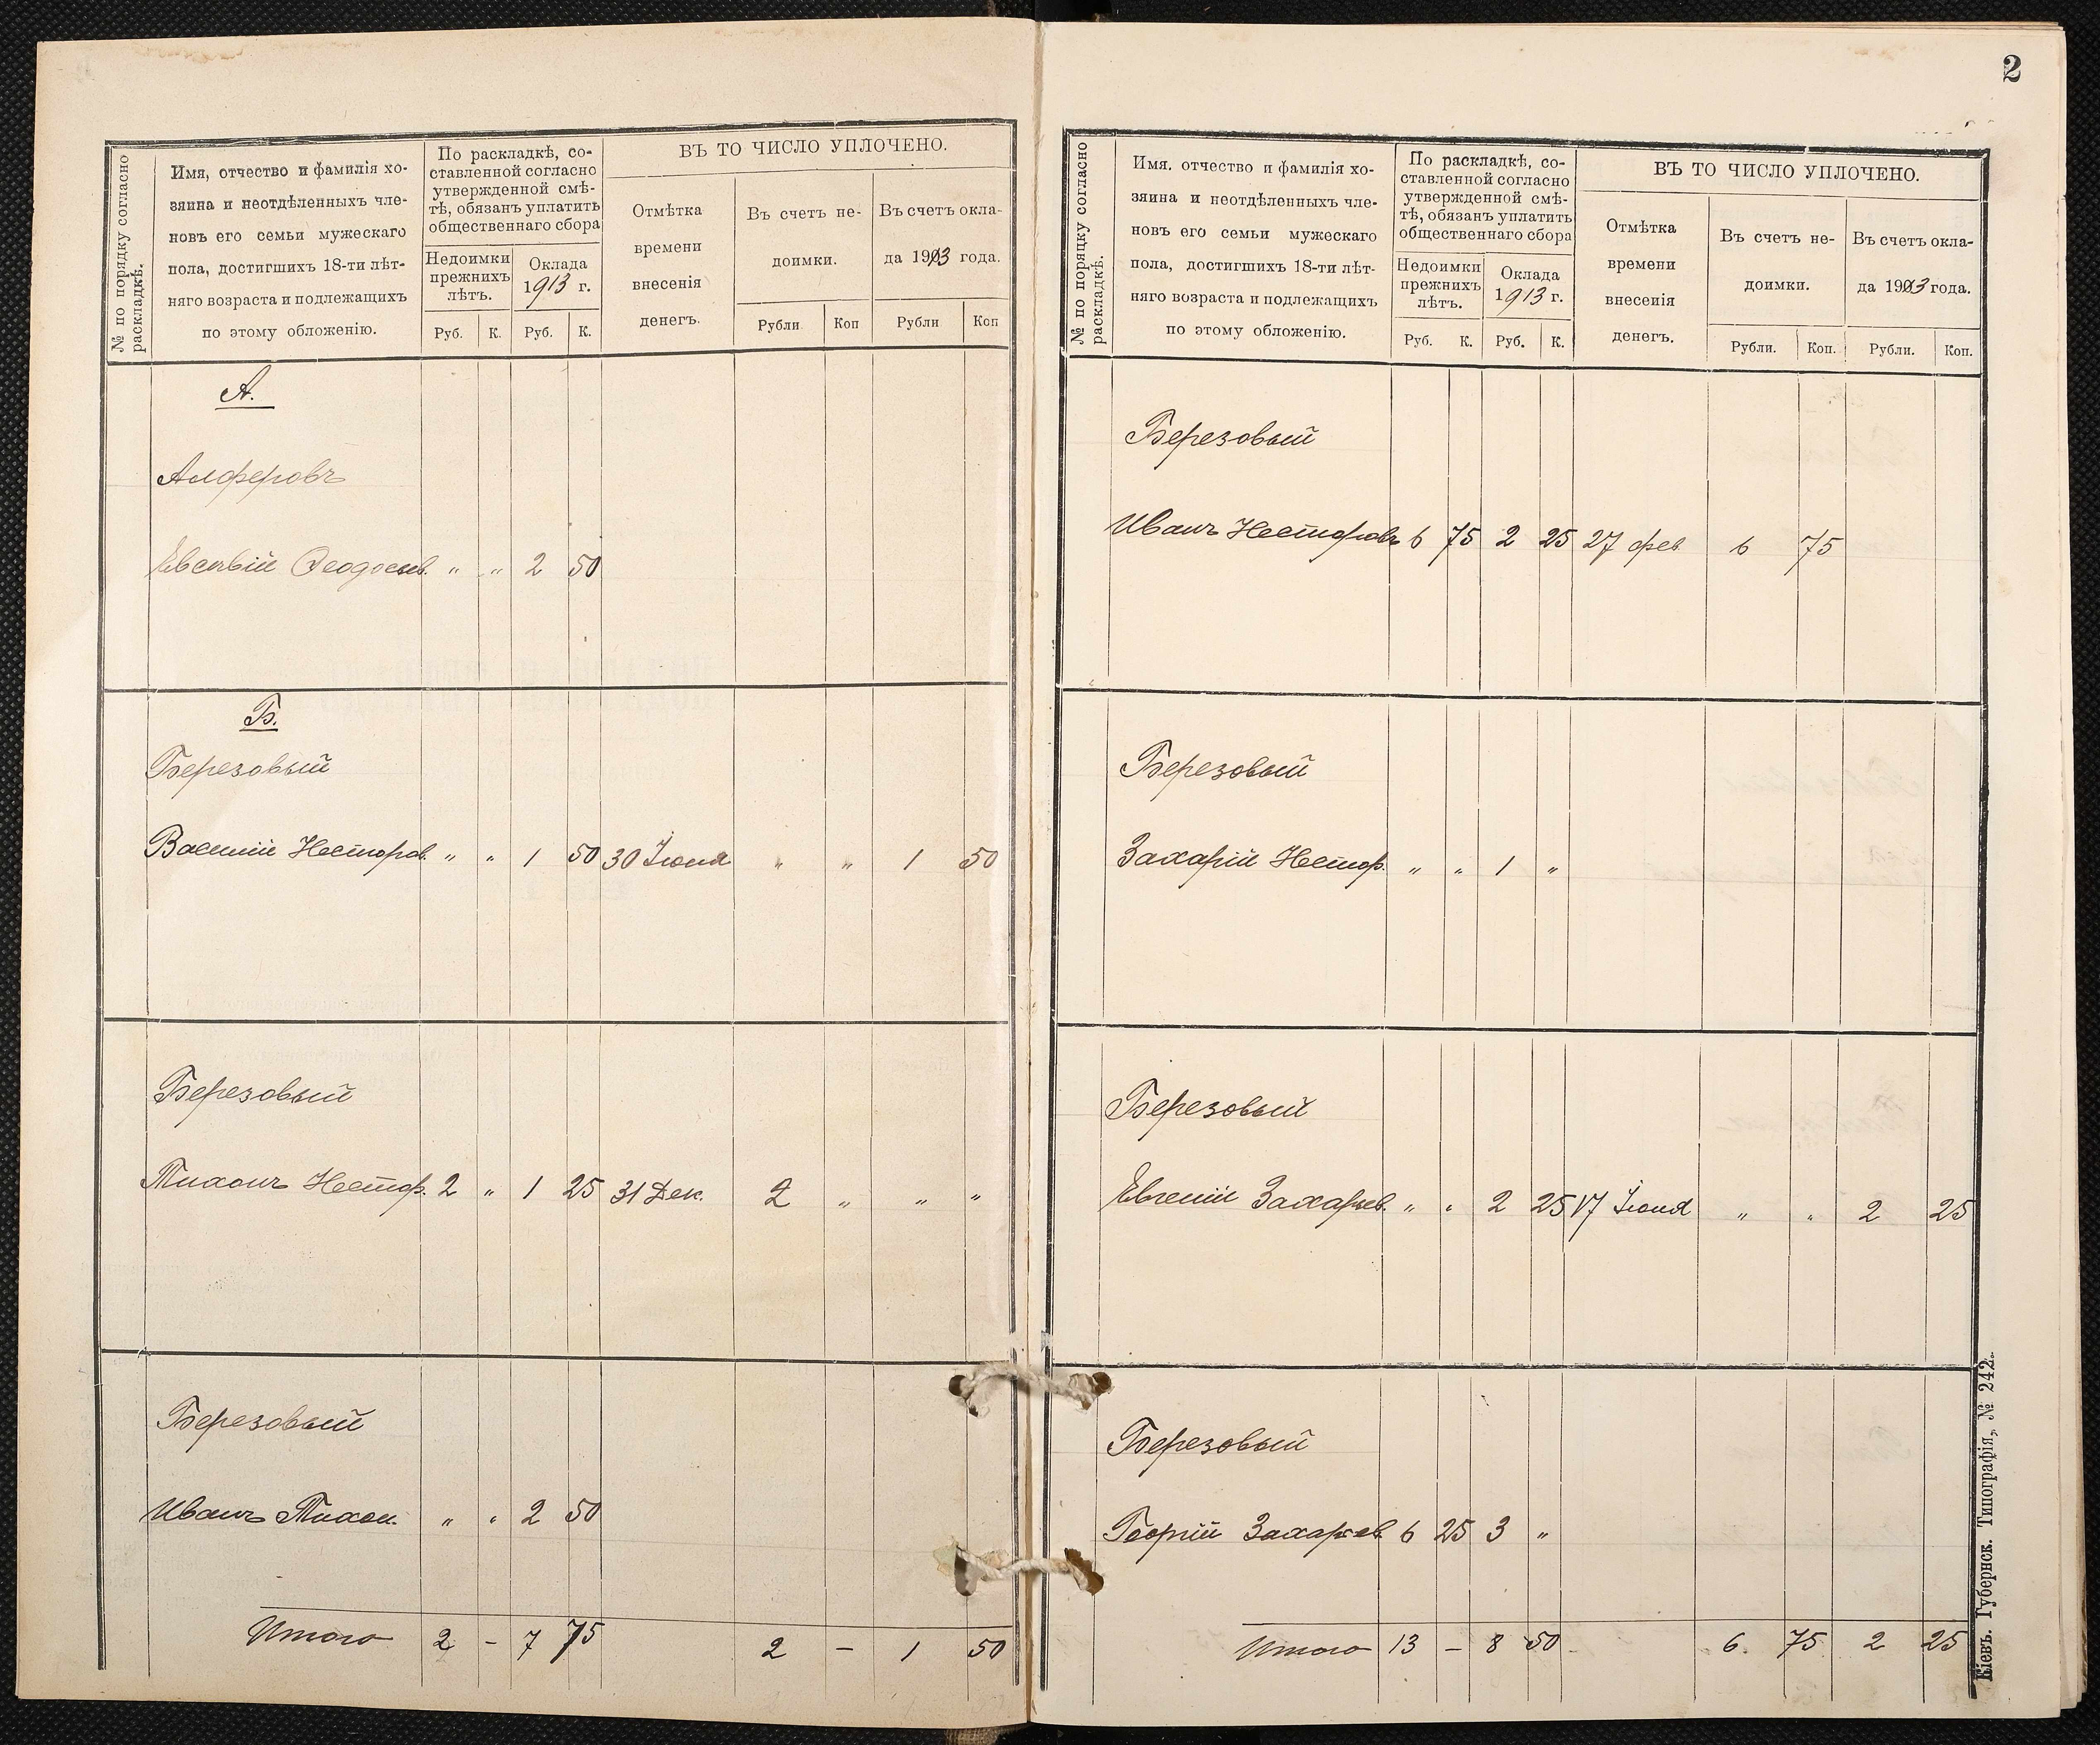 № по порядку согласно
раскладкѣ.
Имя, отчество и фамилія хо-
зяина и неотдѣленныхъ чле-
новъ его семьи мужескаго
пола, достигшихъ 18-ти лѣт-
няго возраста и подлежащихъ
по этому обложенію.
По раскладкѣ, со-
ставленной согласно
утвержденной смѣ-
тѣ, обязанъ уплатить
общественнаго сбора
Недоимки
прежнихъ
лѣтъ.
Руб. К.
Оклада
1913 г.
Руб. К.
ВЪ ТО ЧИСЛО УПЛОЧЕНО.
Отмѣтка
времени
внесенія
денегъ.
Въ счетъ не-
доимки.
Рубли Коп
Въ счетъ окла-
да 1913 года.
Рубли Коп
А.
Алферовъ
Евсѣвій Феодосіев. " " 2 50
Б.
Березовый
Василій Несторов. " " 1 50 30 Іюня " " 1 50
Березовый
Тихонъ Нестор. 2 " 1 25 31 Дек. 2 " " "
Березовый
Иванъ Тихон. " " 2 50
Итого 2 - 7 75 2 - 1 50
2
№ по порядку согласно
раскладкѣ.
Имя, отчество и фамилія хо-
зяина и неотдѣленныхъ чле-
новъ его семьи мужескаго
пола, достигшихъ 18-ти лѣт-
няго возраста и подлежащихъ
по этому обложенію.
По раскладкѣ, со-
ставленной согласно
утвержденной смѣ-
тѣ, обязанъ уплатить
общественнаго сбора
Недоимки
прежнихъ
лѣтъ.
Руб. К.
Оклада
1913 г.
Руб. К.
ВЪ ТО ЧИСЛО УПЛОЧЕНО.
Отмѣтка
времени
внесенія
денегъ.
Въ счетъ не-
доимки.
Рубли. Коп.
Въ счетъ окла-
да 1913 года.
Рубли. Коп.
Березовый
Иванъ Несторовъ 6 75 2 25 27 фев. 6 75
Березовый
Захарій Нестор. " " 1 "
Березовый
Евгеній Захарьев. " " 2 25 17 Іюня " " 2 25
Березовый
Георгій Захарьев. 6 25 3 "
Итого 13 - 8 50 6. 75 2 25
Кіевъ. Губернск. Типографія, № 242.